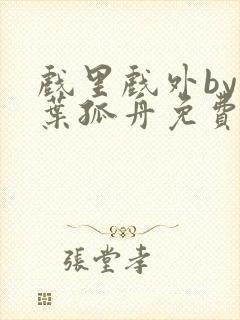 戲里戲外by
葉孤舟免費
張堂孝